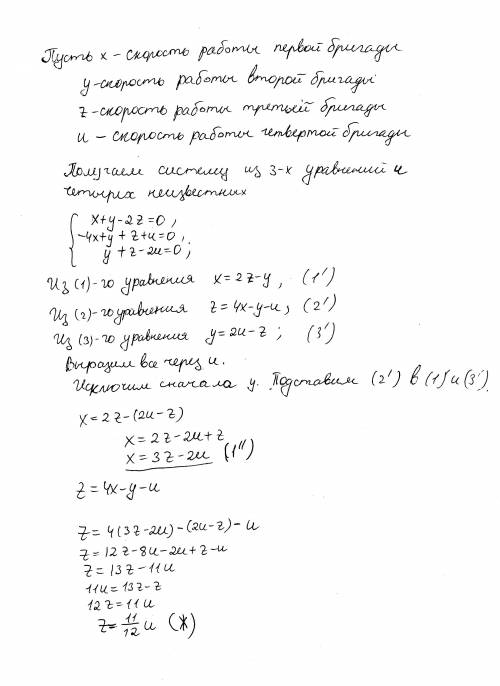 Пусть x – скорость работы первой бригады
y – скорость работы второй бригады
z – скорость работы третьей бригады
u – скорость работы четвертой бригады
Получаем систему из 3-х уравнений и
четырех неизвестных
{ x+y-2z=0 ;
-4x+y+z+u=0 ;
y+z-2u=0 ;
Из (1)-го уравнения x = 2z-y , (1')
Из (2)-го уравнения z = 4x-y-u ; (2')
Из (3)-го уравнения y = 2u-z ; (3')
Выразим все через u.
Исключим сначала y. Подставим (2') в (1') и (3')
x = 2z-(2u-z)
x = 2z-2u+z
x = 3z-2u (1'')
z = 4x-y-u
z = 4(3z-2u)-(2u-z)-u
z = 12z-8u-2u+z-u
z = 13z-11u
11u = 13z-z
12z = 11u
z = 11/12 u (*)